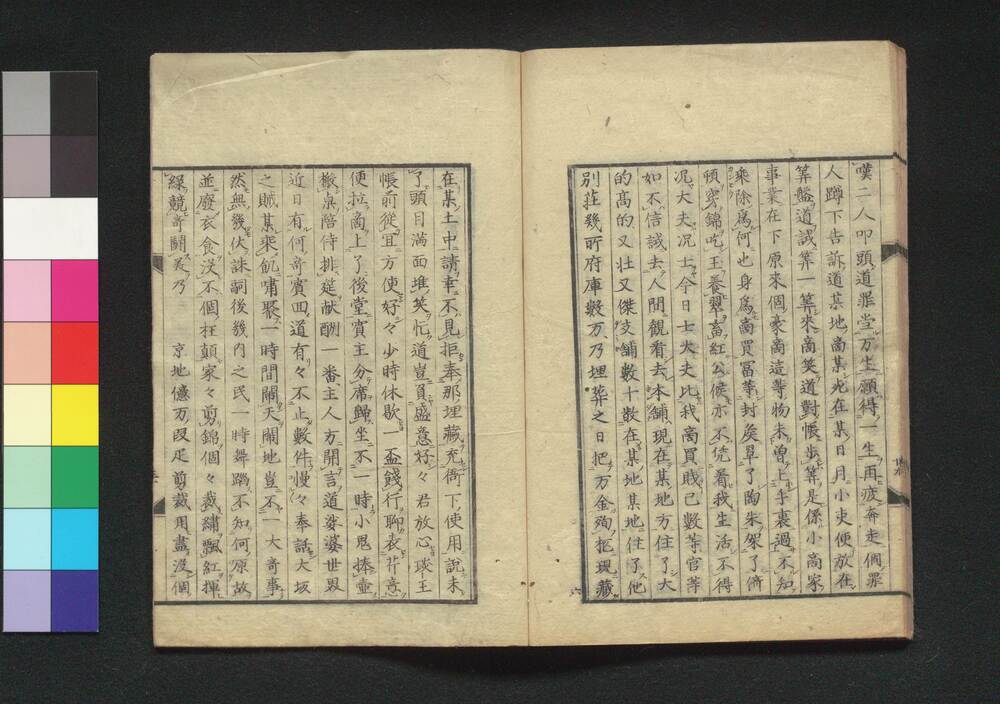 嘆二人叩頭道罪당万生願得一生再疲奔走個罪
人蹲下告訴道某地商某死在某日月小吏便放在
筭盤道誠筭一筭來商笑道對帳出筭是係小商家
事業在下原來個豪商這等物未曾上手裏過不知
乘除爲何也身爲商買冨等封矦卓了陶朱架了猗
頓穿錦吃玉養翠畜紅公候亦不凭看我生活不得
况大夫况士今日士大夫比我商買賎已數等官等
如不信誠去人間觀看去本舗現在某地方住了大
的高的又壮又傑支舗數十散在某地某地住了他
別莊幾所府庫數万乃埋葬之日把万金殉把現藏
在某土中請幸不見拒奉那埋藏充衙下使用說未
了頭目滿面堆笑忙道豈負盛意好々君放心琰王
帳前從宜方便好々少時休歇一盃餞行聊表芹意
便拉商上了後堂賓主分席歸坐不一時小鬼捧壷
擻桌陪侍排筵献酬一番主人方開言道娑婆世界
近日有何奇賓四道有々不止數件慢々奉話大坂
之賊某乘飢嘯聚一時間閙天閙地豈不一大奇事
然無幾伏誅嗣後幾内之民一時舞蹈不知何原故
並廢衣食没不個狂顛家々剪錦個々裁繡飄紅揮
緑競奇鬪美乃 京地億万段疋剪裁用盡没個